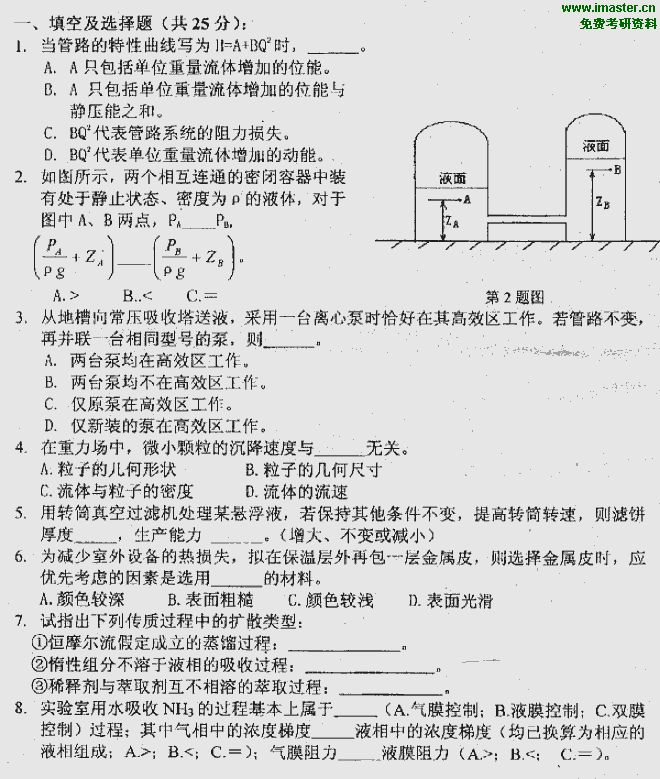 www.imaster.cn
免费考研资料
一、填空及选择题（共25分）：
1. 当管路的特性曲线写为 H=A+BQ²时，______。
A. A 只包括单位重量流体增加的位能。
B. A 只包括单位重量流体增加的位能与
静压能之和。
C. BQ²代表管路系统的阻力损失。
D. BQ²代表单位重量流体增加的动能。
2. 如图所示，两个相互连通的密闭容器中装
有处于静止状态、密度为ρ的液体，对于
图中 A、B 两点，P_A____P_B,
(P_A/ρg + Z_A)____(P_B/ρg + Z_B)。
A. > B..< C. =
液面
A
Z_A
液面
B
Z_B
第 2 题图
3. 从地槽向常压吸收塔送液，采用一台离心泵时恰好在其高效区工作。若管路不变，
再并联一台相同型号的泵，则______。
A. 两台泵均在高效区工作。
B. 两台泵均不在高效区工作。
C. 仅原泵在高效区工作。
D. 仅新装的泵在高效区工作。
4. 在重力场中，微小颗粒的沉降速度与______无关。
A. 粒子的几何形状 B. 粒子的几何尺寸
C. 流体与粒子的密度 D. 流体的流速
5. 用转筒真空过滤机处理某悬浮液，若保持其他条件不变，提高转筒转速，则滤饼
厚度_____，生产能力 ______。（增大、不变或减小）
6. 为减少室外设备的热损失，拟在保温层外再包一层金属皮，则选择金属皮时，应
优先考虑的因素是选用______的材料。
A. 颜色较深 B. 表面粗糙 C. 颜色较浅 D. 表面光滑
7. 试指出下列传质过程中的扩散类型：
①恒摩尔流假定成立的蒸馏过程：______________。
②惰性组分不溶于液相的吸收过程：______________。
③稀释剂与萃取剂互不相溶的萃取过程：______________。
8. 实验室用水吸收 NH₃ 的过程基本上属于_____（A.气膜控制；B.液膜控制；C.双膜
控制）过程；其中气相中的浓度梯度_____液相中的浓度梯度（均已换算为相应的
液相组成；A.>；B.<；C.=）；气膜阻力_____液膜阻力（A.>；B.<； C.=）。